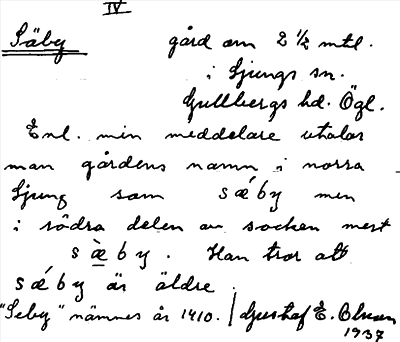 IV
Säby gård om 2 1/2 mtl.
i Ljungs sn.
Gullbergs hd. Ögl.
Enl. min meddelare uttalas
man gårdens namn i norra
Ljung som sǽby men
i södra delen av socken mest
sæ̀by. Han tror att
sǽby är äldre.
"Seby" nämnes år 1410. / Gustaf E. Olsson
1937